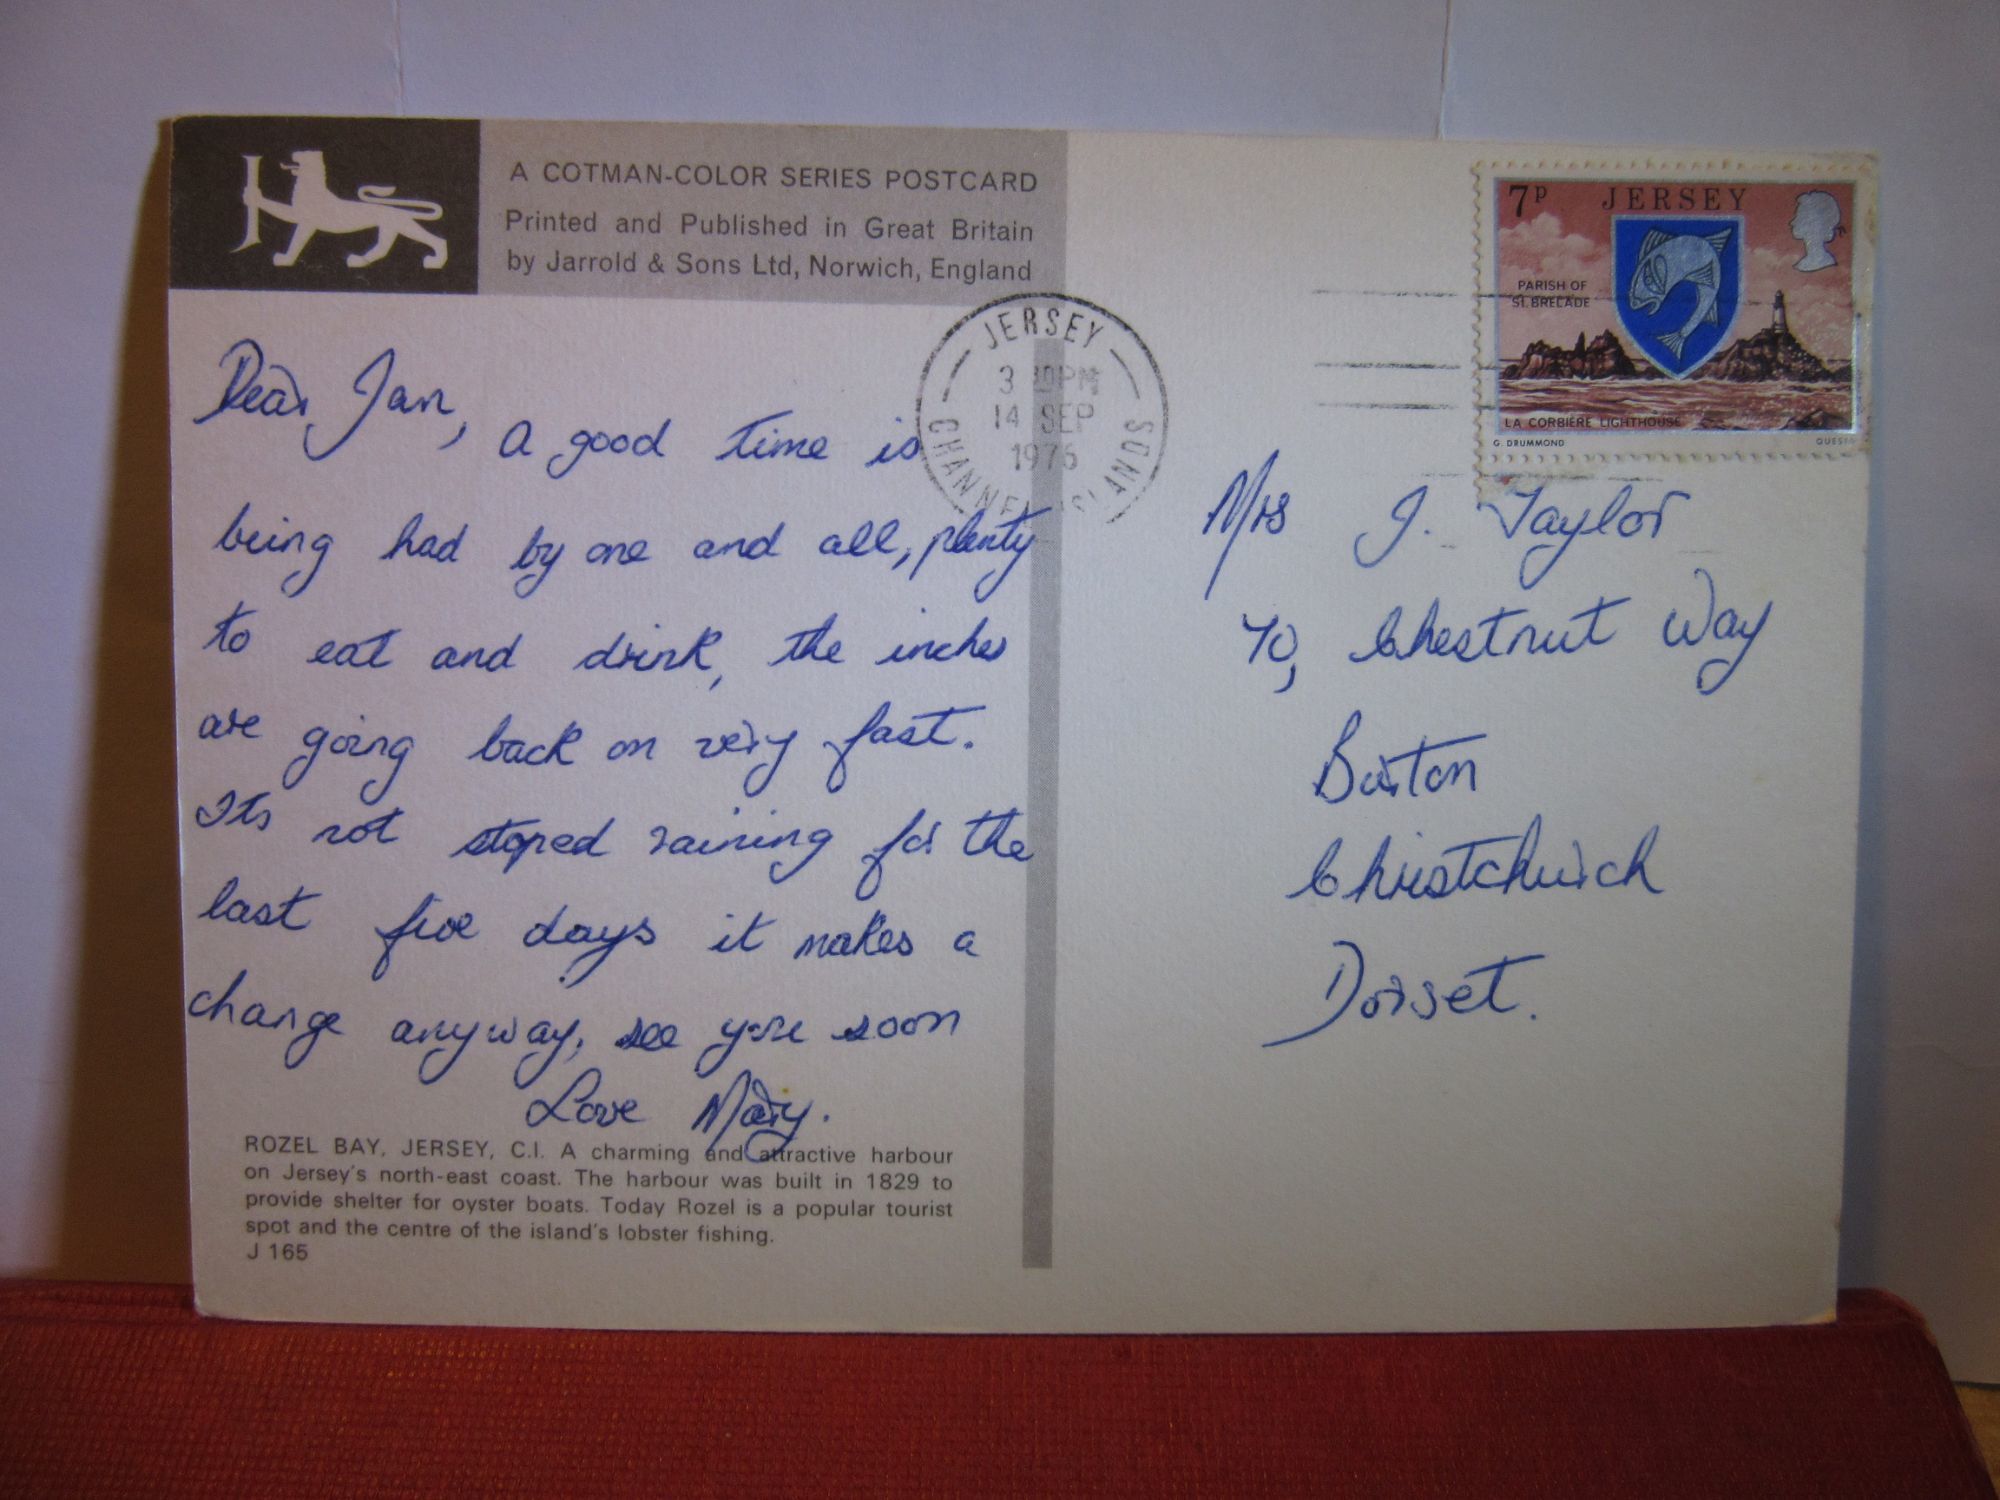 A COTMAN-COLOR SERIES POSTCARD
Printed and Published in Great Britain
by Jarrold & Sons Ltd, Norwich, England
Dear Jan, a good time is
being had by one and all, plenty
to eat and drink, the inches
are going back on very fast.
Its not stoped raining for the
last five days it makes a
change anyway, see you soon
Love Mary.
ROZEL BAY, JERSEY, C.I. A charming and attractive harbour
on Jersey's north-east coast. The harbour was built in 1829 to
provide shelter for oyster boats. Today Rozel is a popular tourist
spot and the centre of the island's lobster fishing.
J 165
JERSEY
3 30PM
14 SEP
1976
CHANNEL ISLANDS
7p JERSEY
PARISH OF
ST. BRELADE
LA CORBIÈRE LIGHTHOUSE
G. DRUMMOND
Mrs J. Taylor
70, Chestnut Way
Burton
Christchurch
Dorset.